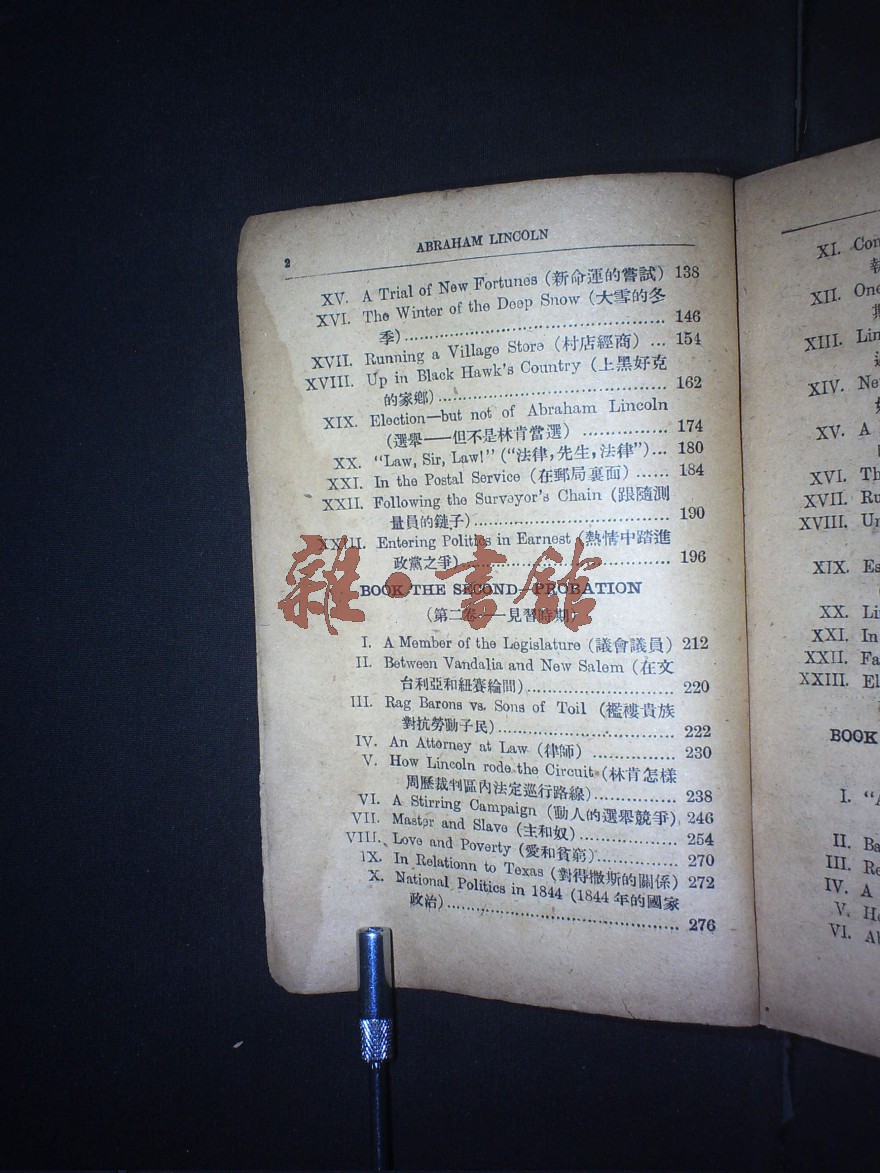 2
ABRAHAM LINCOLN
XV. A Trial of New Fortunes (新命運的嘗試) 138
XVI. The Winter of the Deep Snow (大雪的冬
季)........................................ 146
XVII. Running a Village Store (村店經商) ... 154
XVIII. Up in Black Hawk's Country (上黑好克
的家鄉)................................... 162
XIX. Election—but not of Abraham Lincoln
(選舉——但不是林肯當選) ............... 174
XX. "Law, Sir, Law!" ("法律,先生,法律")... 180
XXI. In the Postal Service (在郵局裏面) ...... 184
XXII. Following the Surveyor's Chain (跟隨測
量員的鏈子).................................. 190
XXIII. Entering Politics in Earnest (熱情中踏進
政黨之爭).................................... 196
雜·書館
BOOK THE SECOND—PROBATION
(第二卷——見習時期)
I. A Member of the Legislature (議會議員) 212
II. Between Vandalia and New Salem (在文
台利亞和紐賽綸間).......................... 220
III. Rag Barons vs. Sons of Toil (襤褸貴族
對抗勞動子民)................................ 222
IV. An Attorney at Law (律師) ............... 230
V. How Lincoln rode the Circuit (林肯怎樣
周歷裁判區內法定巡行路線).............. 238
VI. A Stirring Campaign (動人的選舉競爭) 246
VII. Master and Slave (主和奴)................. 254
VIII. Love and Poverty (愛和貧窮).............. 270
IX. In Relationn to Texas (對得撒斯的關係) 272
X. National Politics in 1844 (1844 年的國家
政治)......................................... 276
XI.
XII.
XIII.
XIV.
XV. A
XVI.
XVII.
XVIII.
XIX.
XX.
XXI. In
XXII.
XXIII.
BOOK
I.
II.
III.
IV. A
V.
VI.